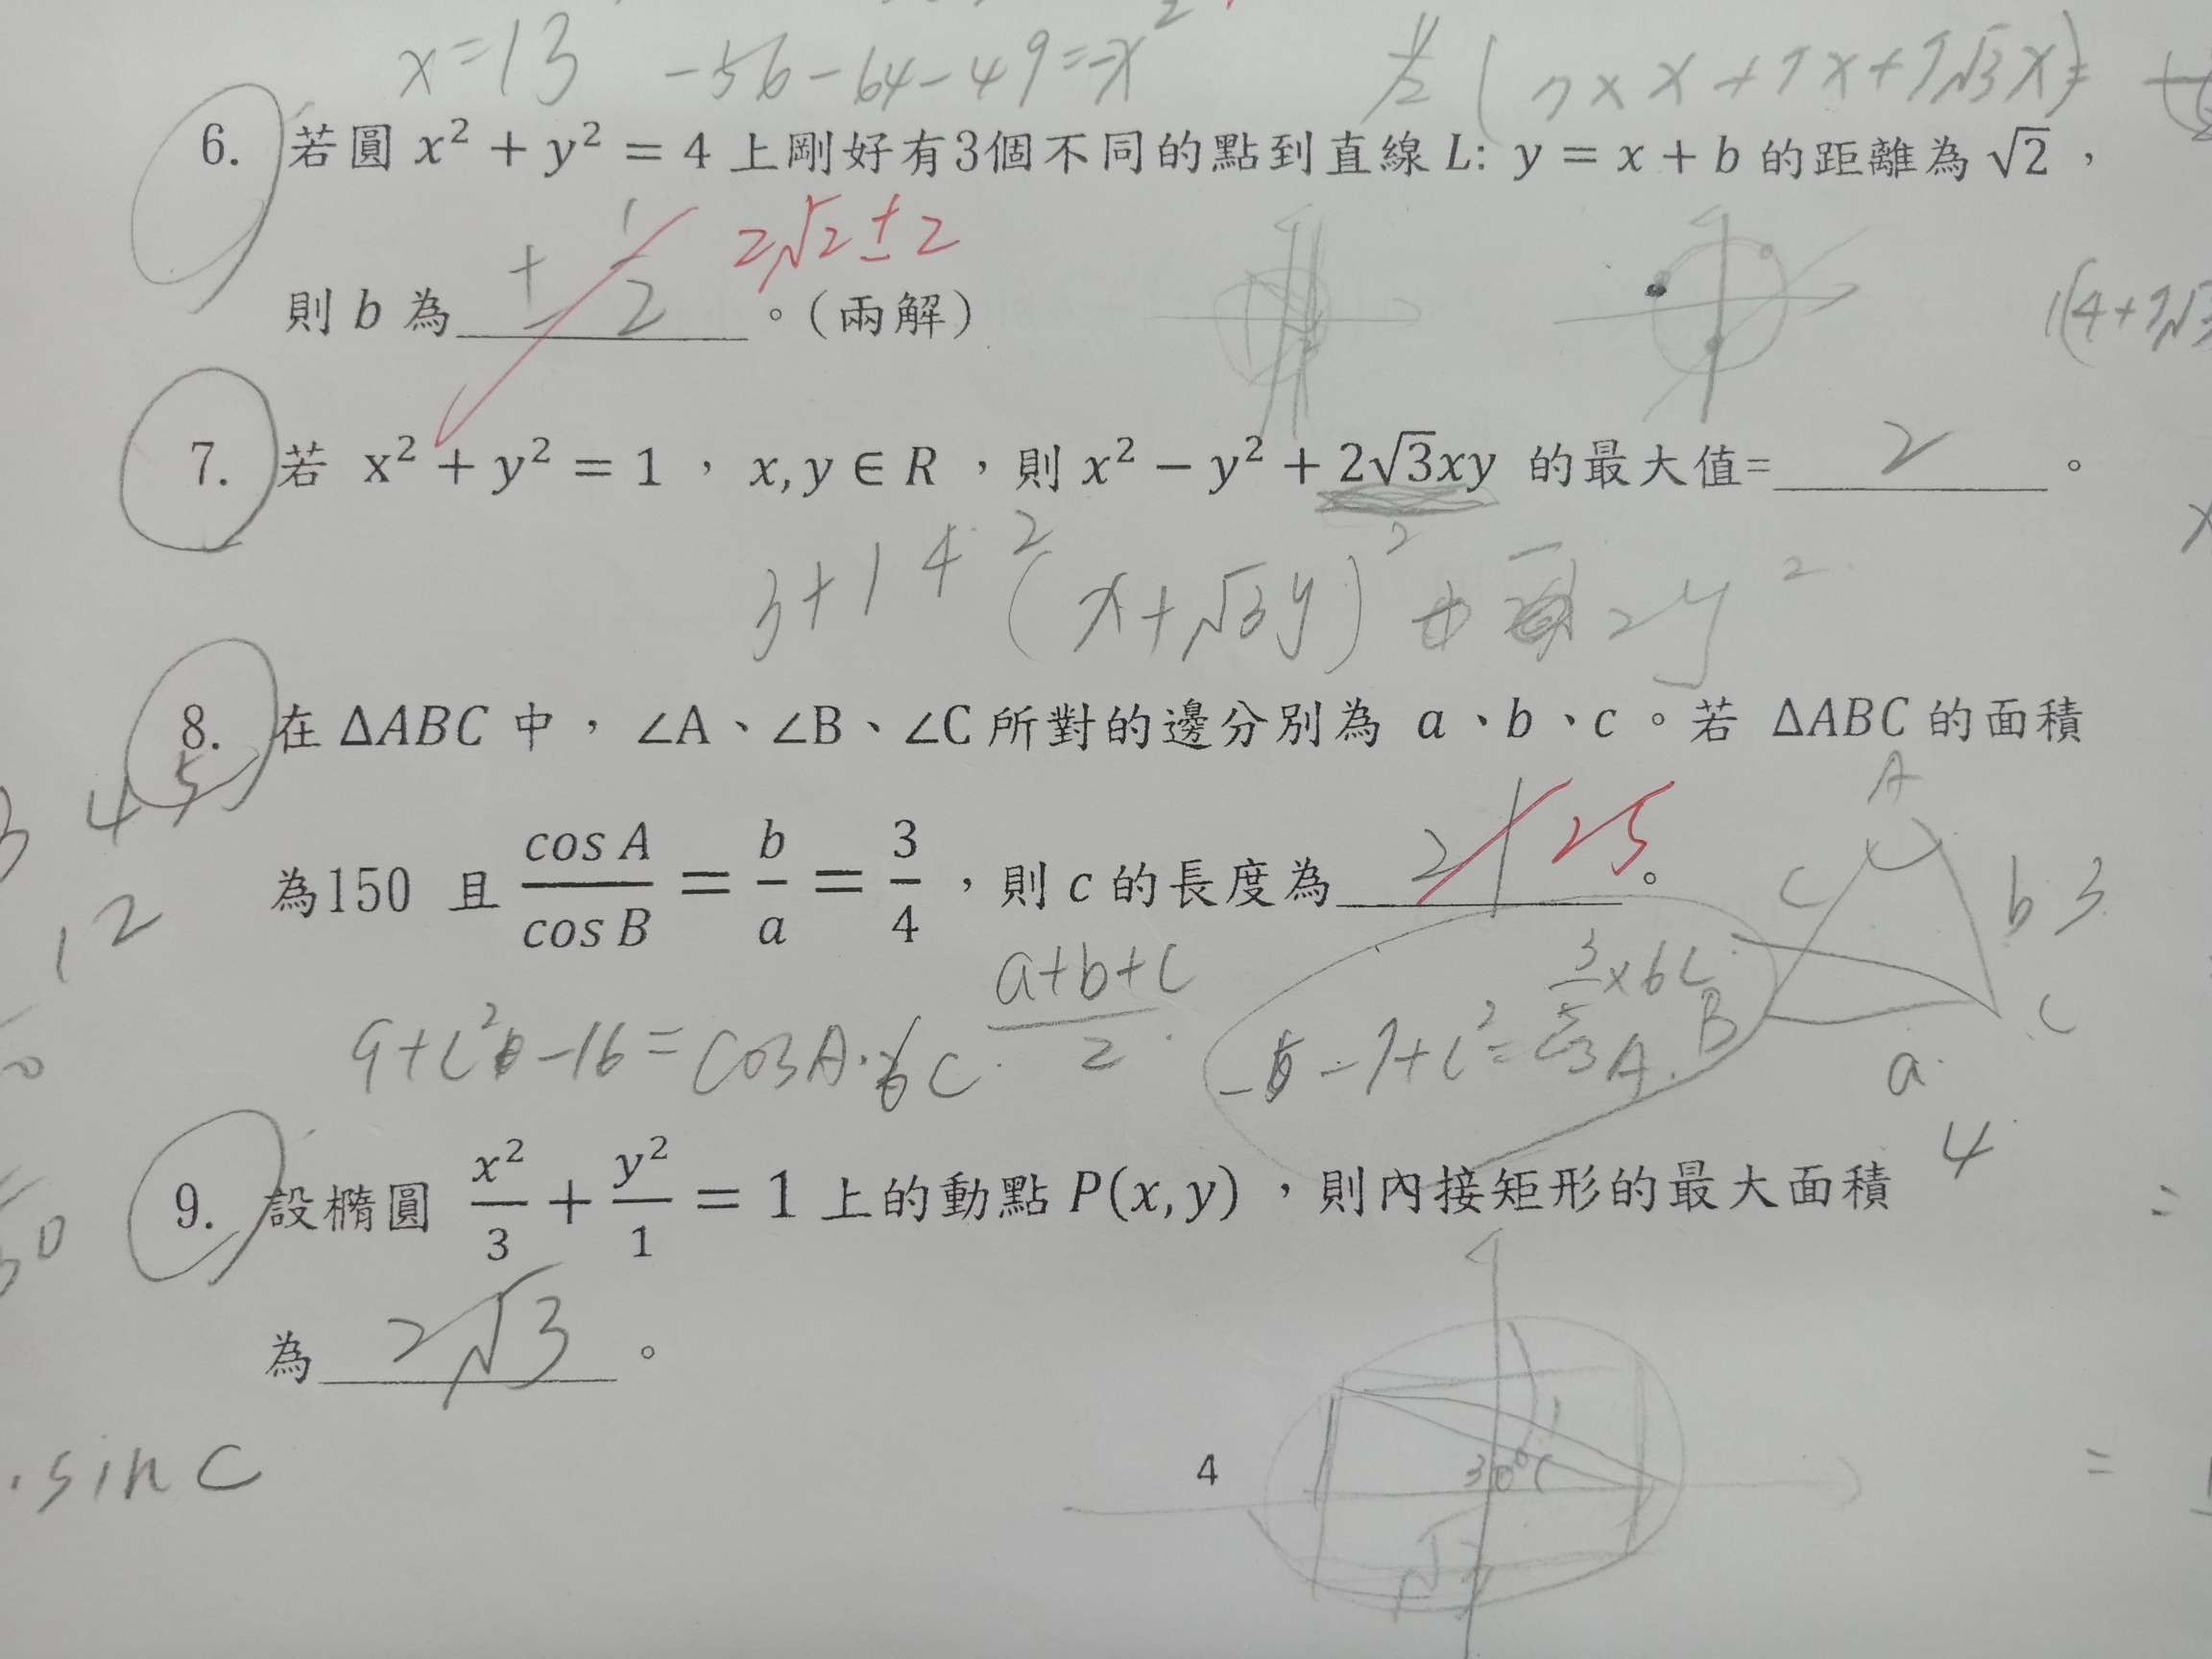 x=13 -56-64-49=-x²
½(7×x+7x+7√3x)=
6. 若圓 x² + y² = 4 上剛好有3個不同的點到直線 L: y = x + b 的距離為 √2，
2√2±2
則 b 為 ± 1/2 。(兩解)
7. 若 x² + y² = 1 , x, y ∈ R ，則 x² − y² + 2√3xy 的最大值= 2 。
3+1 4 (x+√3y)² 2y²
8. 在 ΔABC 中， ∠A、∠B、∠C 所對的邊分別為 a、b、c。若 ΔABC 的面積
3 4 5
為150 且 cos A/cos B = b/a = 3/4 ，則 c 的長度為 21 25 。
12
A
c
b 3
B
C
a
4
a+b+c/2
9+c²-16=cosA·6c
-7+c²=
9. 設橢圓 x²/3 + y²/1 = 1 上的動點 P(x, y) ，則內接矩形的最大面積
為 2√3 。
30°
1
√3
.sin C
4